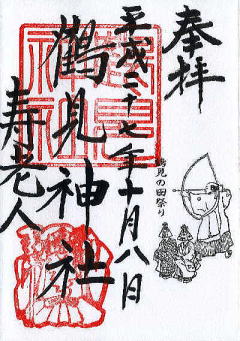 奉拝
平成二十七年十月八日
鶴見神社
寿老人
鶴見の田祭り